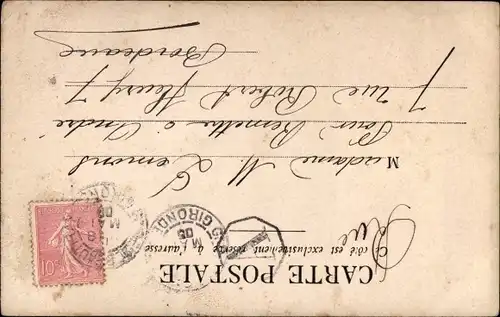 CARTE POSTALE
Ce côté est exclusivement réservé à l'adresse
Madame M Lemons
Pour Remettre à André
7 rue Robert Fleury 7
Bordeaux
10c
GIRONDE
MAI
05